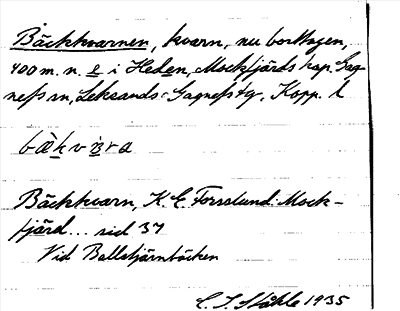 Bäckkvarnen, kvarn, nu borttagen,
400 m. n. e i Heden, Mockfjärds kap. Gag-
nefs sn, Leksands-Gagnefs tg, Kopp. l
Bäckkvarn, K. E. Forsslund: Mock-
fjärd... sid 37
Vid Ballstjärnbäcken
C. I. Ståhle 1935